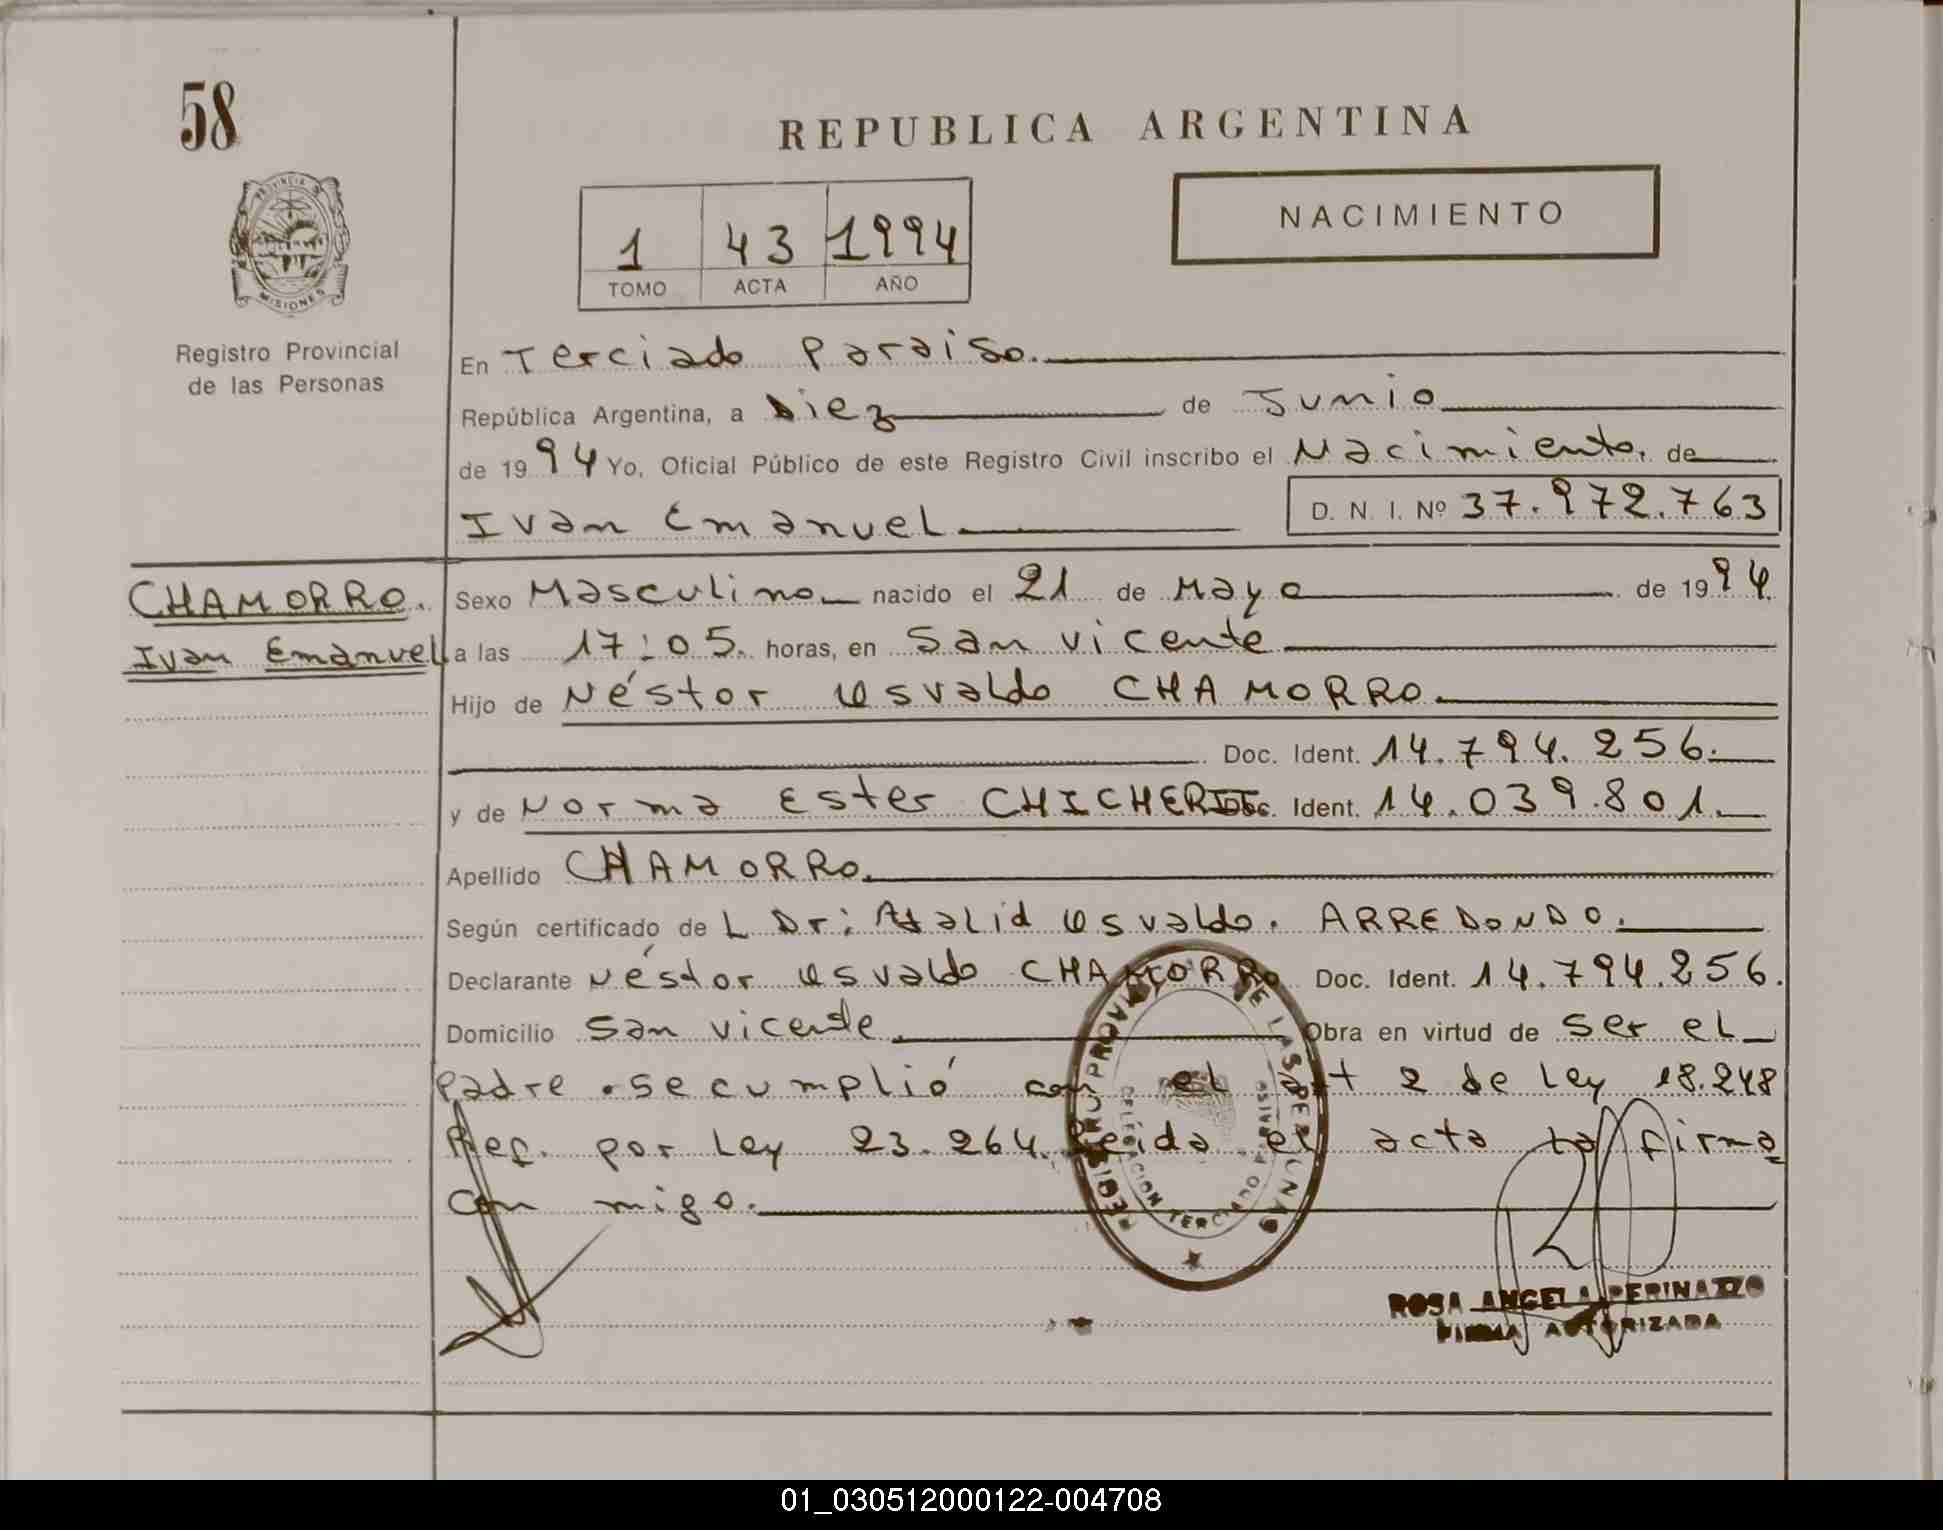 58
REPUBLICA ARGENTINA
NACIMIENTO
1 43 1994
TOMO ACTA AÑO
PROVINCIA D MISIONES
Registro Provincial
de las Personas
En Terciado Paraiso.
República Argentina, a Diez de Junio
de 1994 Yo, Oficial Público de este Registro Civil inscribo el Nacimiento. de
Ivan Emanuel D. N. I. Nº 37.972.763
CHAMORRO.
Ivan Emanuel
Sexo Masculino nacido el 21 de Mayo de 1994.
a las 17:05. horas, en San Vicente
Hijo de Néstor Osvaldo CHAMORRO.
Doc. Ident. 14.794.256.
y de Norma Ester CHICHERIT Doc. Ident. 14.039.801.
Apellido CHAMORRO.
Según certificado de L Dr: Osvaldo. ARREDONDO.
Declarante Néstor Osvaldo CHAMORRO Doc. Ident. 14.794.256.
Domicilio San Vicente. Obra en virtud de ser el
padre. se cumplió con el Art 2 de Ley 18.248
Ref. por Ley 23.264. Leida el acta la firma
con migo.
REGISTRO PROVINCIAL DE LAS PERSONAS
DELEGACION TERCIADO PARAISO
ROSA ANGELA PERINAZZO
FIRMA AUTORIZADA
01_030512000122-004708